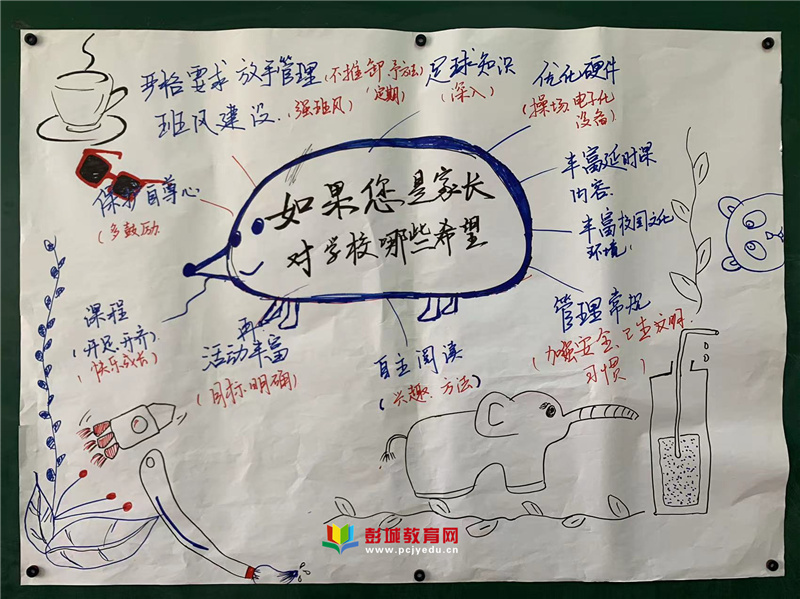 严格要求 放手管理(不推卸 予方法)
班风建设.(强班风) 定期
足球知识
(深入)
优化硬件
(操场.电子化
设备)
丰富延时课
内容.
丰富校园文化
环境!
保护自尊心
(多鼓励
如果您是家长
对学校哪些希望
课程
(开足.开齐)
(快乐成长)
再
活动丰富
(目标.明确)
自主阅读
(兴趣.方法)
管理常规
(加强安全.卫生文明
习惯)
彭城教育网
www.pcjyedu.cn